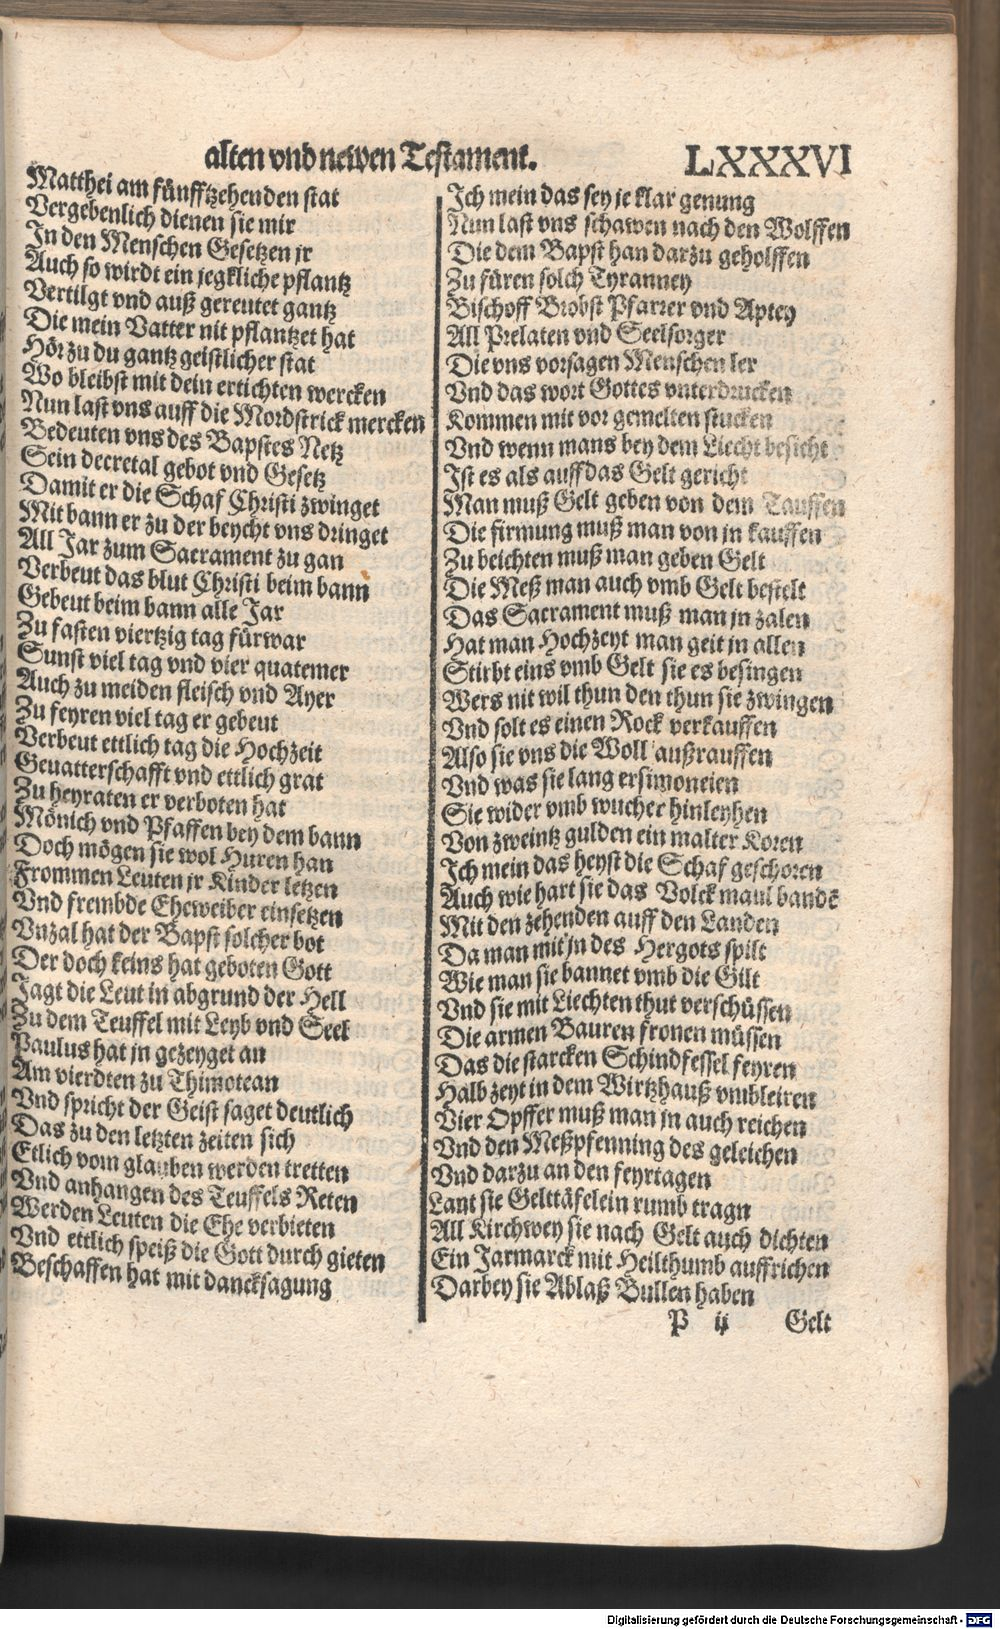 alten vnd newen Testament. LXXXVI
Matthei am fünfftzehenden stat
Vergebenlich dienen sie mir
In den Menschen Gesetzen jr
Auch so wirdt ein jegkliche pflantz
Vertilgt vnd auß gereutet gantz
Die mein Vatter nit pflantzet hat
Hör zu du gantz geistlicher stat
Wo bleibst mit dein ertichten wercken
Nun last vns auff die Mordstrick mercken
Bedeuten vns des Bapstes Netz
Sein decretal gebot vnd Gesetz
Damit er die Schaf Christi zwinget
Mit bann er zu der beycht vns dringet
All Jar zum Sacrament zu gan
Verbeut das blut Christi beim bann
Gebeut beim bann alle Jar
Zu fasten viertzig tag fürwar
Sunst viel tag vnd vier quatemer
Auch zu meiden fleisch vnd Ayer
Zu feyren viel tag er gebeut
Verbeut ettlich tag die Hochzeit
Geuatterschafft vnd ettlich grat
Zu heyraten er verboten hat
Mönich vnd Pfaffen bey dem bann
Doch mögen sie wol Huren han
Frommen Leuten jr Kinder letzen
Vnd frembde Eheweiber einsetzen
Vnzal hat der Bapst solcher bot
Der doch keins hat geboten Gott
Jagt die Leut in abgrund der Hell
Zu dem Teuffel mit Leyb vnd Seel
Paulus hat jn gezeyget an
Am vierdten zu Thimotean
Vnd spricht der Geist saget deutlich
Das zu den letzten zeiten sich
Etlich vom glauben werden tretten
Vnd anhangen des Teuffels Reten
Werden Leuten die Ehe verbieten
Vnd ettlich speiß die Gott durch gieten
Beschaffen hat mit dancksagung
Ich mein das sey je klar genung
Nun last vns schawen nach den Wolffen
Die dem Bapst han darzu geholffen
Zu füren solch Tyranney
Bischoff Brobst Pfarrer vnd Aptey
All Prelaten vnd Seelsorger
Die vns vorsagen Menschen ler
Vnd das wort Gottes vnterdrucken
Kommen mit vor gemelten stucken
Vnd wenn mans bey dem Liecht besicht
Ist es als auff das Gelt gericht
Man muß Gelt geben von dem Tauffen
Die firmung muß man von jn kauffen
Zu beichten muß man geben Gelt
Die Meß man auch vmb Gelt bestelt
Das Sacrament muß man jn zalen
Hat man Hochzeyt man geit jn allen
Stirbt eins vmb Gelt sie es besingen
Wers nit wil thun den thun sie zwingen
Vnd solt es einen Rock verkauffen
Also sie vns die Woll außrauffen
Vnd was sie lang ersimoneien
Sie wider vmb wucher hinleyhen
Von zweintz gulden ein malter Koren
Ich mein das heyst die Schaf geschoren
Auch wie hart sie das Volck maul bandē
Mit den zehenden auff den Landen
Da man mit jn des Hergots spilt
Wie man sie bannet vmb die Gilt
Vnd sie mit Liechten thut verschüssen
Die armen Bauren fronen müssen
Das die starcken Schindfessel feyren
Halb zeyt in dem Wirtzhauß vmbleiren
Vier Opffer muß man jn auch reichen
Vnd den Meßpfenning des geleichen
Vnd darzu an den feyrtagen
Lant sie Gelttäfelein rumb tragn
All Kirchwey sie nach Gelt auch dichten
Ein Jarmarck mit Heilthumb auffrichen
Darbey sie Ablaß Bullen haben
P ij Gelt
Digitalisierung gefördert durch die Deutsche Forschungsgemeinschaft - DFG